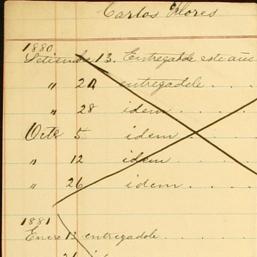 Carlos Flores
1880
Setiembe 13. Entregadole este año
" 21 entregadole . . . .
" 28 idem . . . .
Octe 5 idem . . . .
" 12 idem . . . .
" 26 idem . . . .
1881
Enero 13 entregadole . . . .